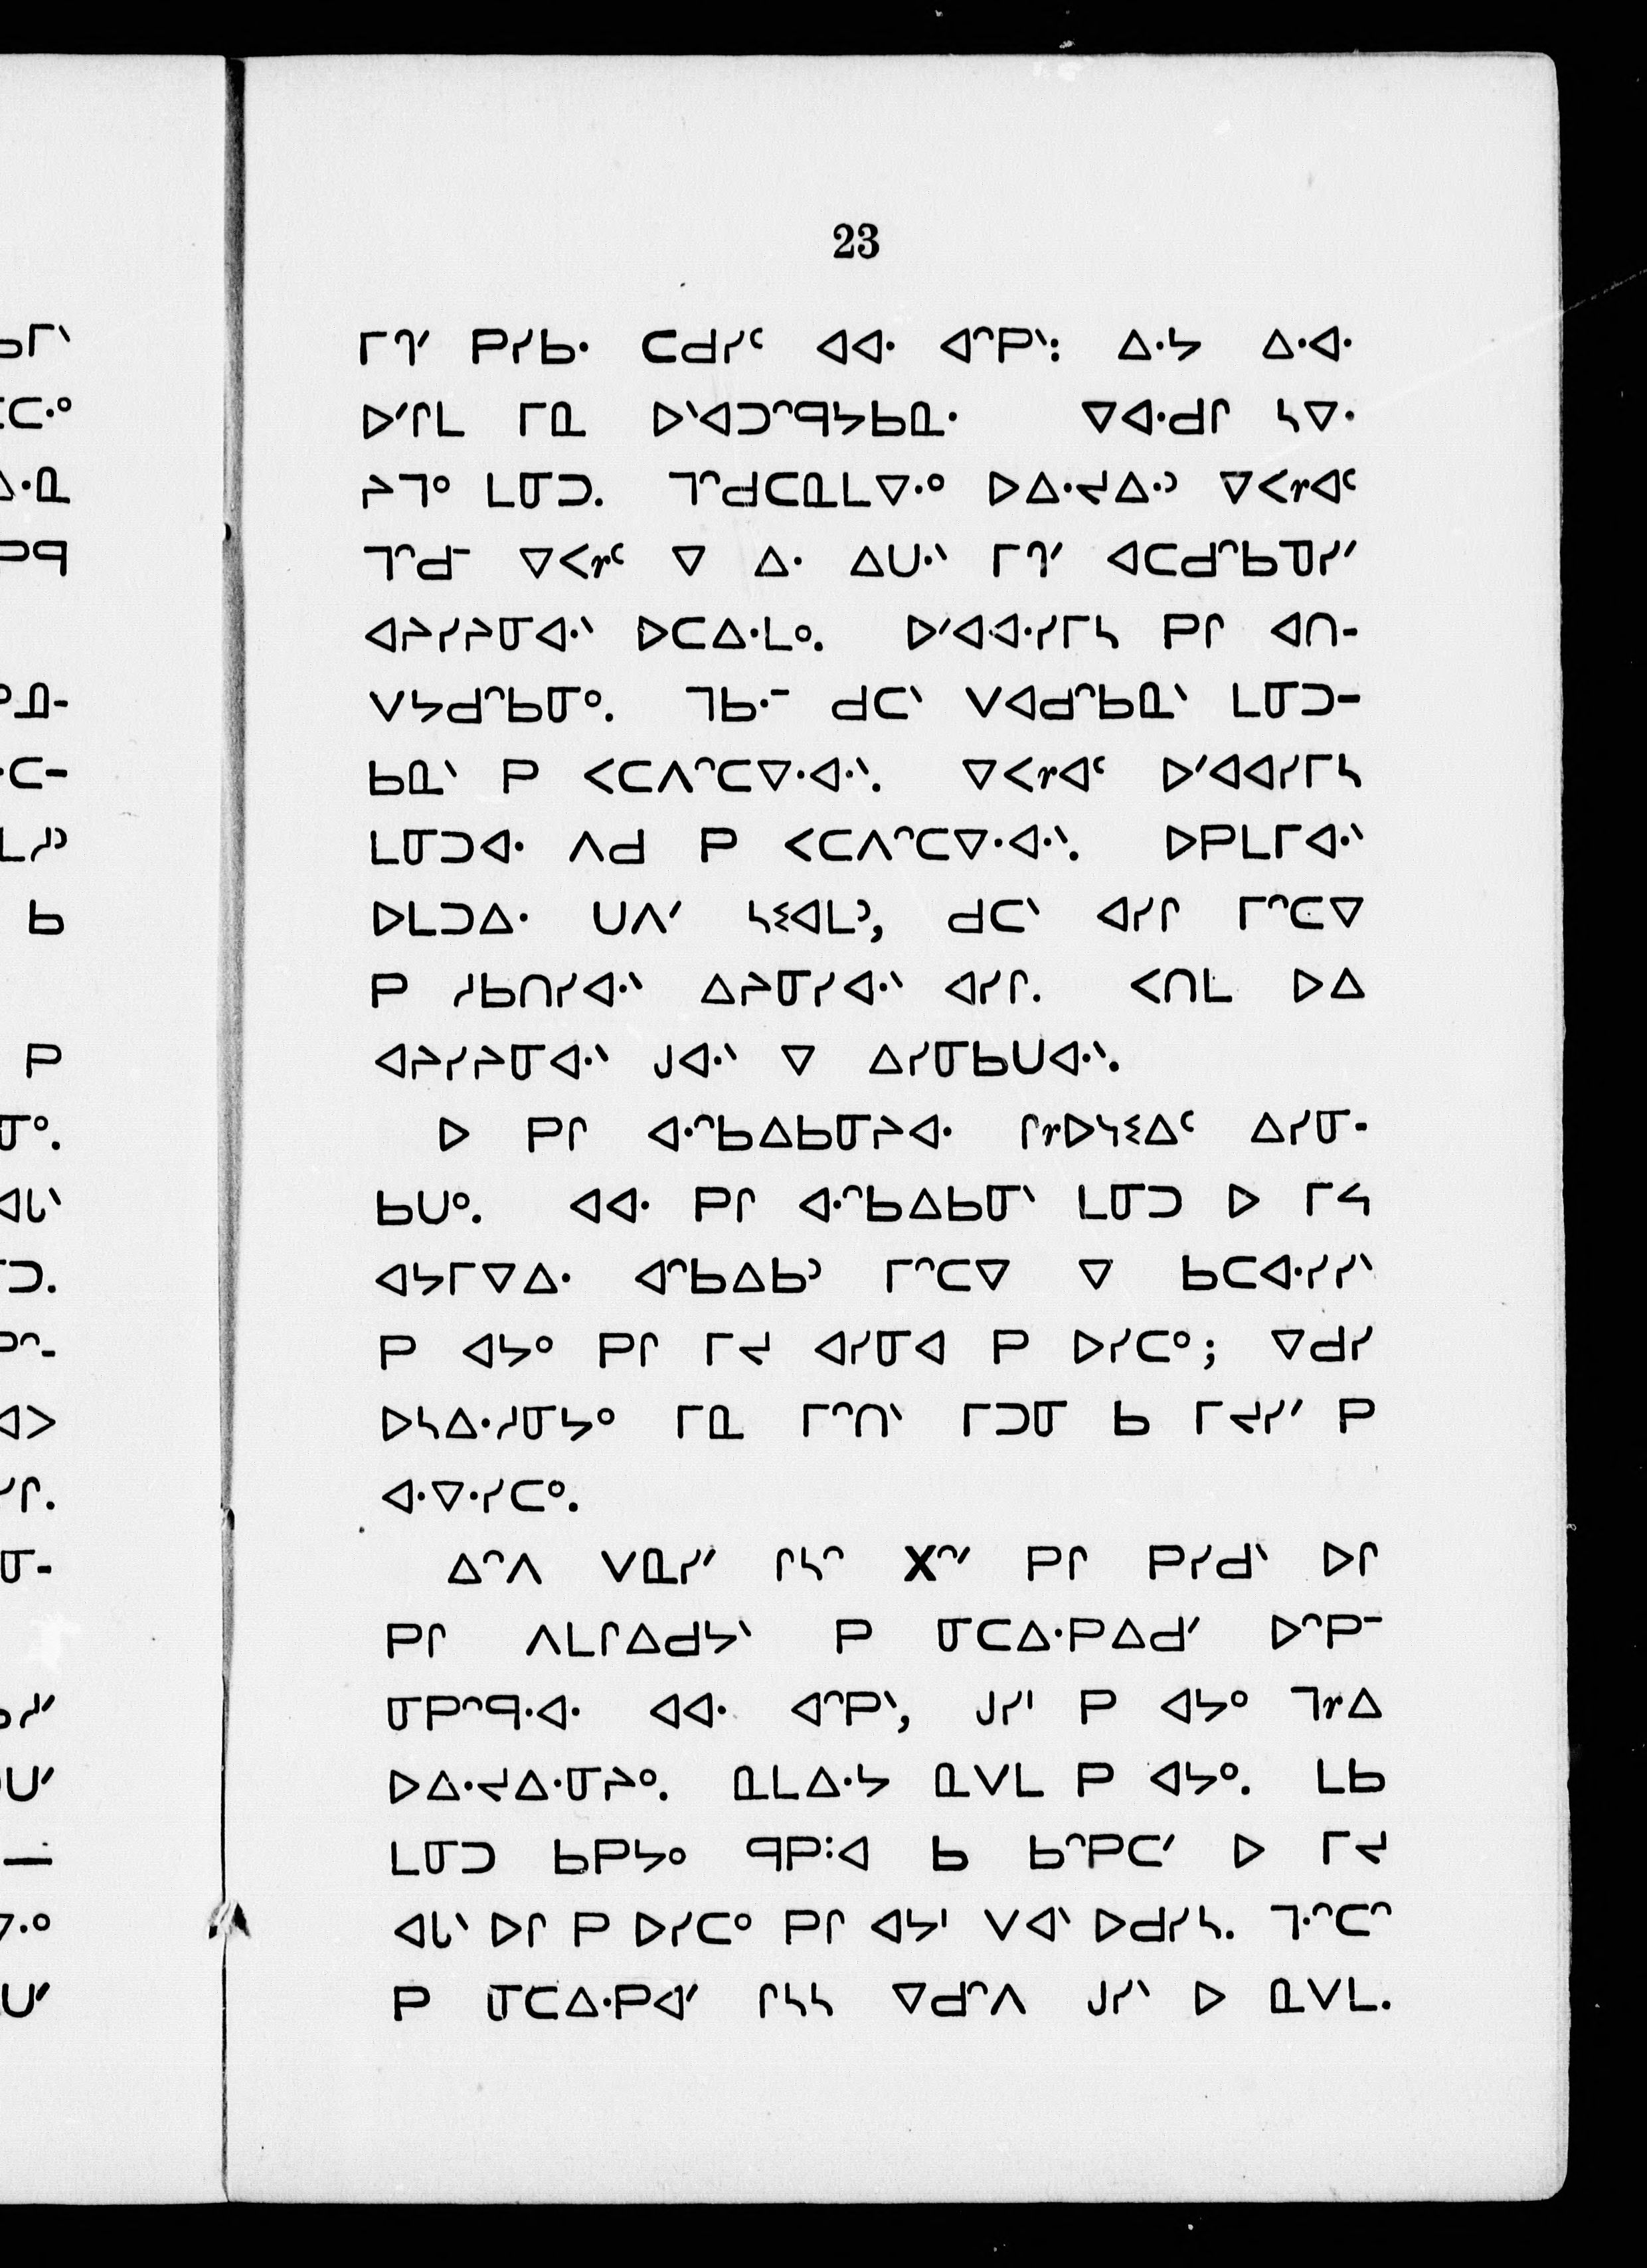 23
ᒥᒉᐟ ᑭᓯᑲᐧ ᑕᑯᓯᑦ ᐊᐊᐧ ᐊᐢᑭᐠ: ᐃᐧᔭ ᐃᐧᐊᐧ
ᐅᐟᒋᒪ ᒥᓇ ᐅᐠᐊᑐᐢᑫᔭᑲᓇᐧ ᐁᐊᐧᑯᒋ ᓴᐁᐧ
ᔨᒣᐤ ᒪᓂᑐ. ᒣᐢᑯᑕᓇᒪᐁᐧᐤ ᐅᐃᐧᔪᐃᐧᐣ ᐁᐸᕒᐊᑦ
ᒣᐢᑯᐨ ᐁᐸᕒᑦ ᐁ ᐃᐧ ᐃᑌᐧᐠ ᒥᒉᐟ ᐊᑕᑯᐢᑲᓀᓯᐟ
ᐊᔨᓯᔨᓂᐊᐧᐠ ᐅᑕᐃᐧᒪᐤ. ᐅᐟᐊᐊᐧᓯᒥᓴ ᑭᒋ ᐊᑎ-
ᐯᔭᑯᐢᑲᓂᐤ. ᒣᑲᐧᐨ ᑯᑕᐠ ᐯᐊᑯᐢᑲᓇᐠ ᒪᓂᑐ-
ᑲᓇᐠ ᑭ ᐸᑕᐱᐢᑕᐁᐧᐊᐧᐠ. ᐁᐸᕒᐊᑦ ᐅᐟᐊᐊᓯᒥᓴ
ᒪᓂᑐᐊᐧ ᐱᑯ ᑭ ᐸᑕᐱᐢᑕᐁᐧᐊᐧᐠ. ᐅᑭᒪᒥᐊᐧᐠ
ᐅᒪᑐᐃᐧ ᑌᐱᐟ ᓴᓬᐊᒪᐣ, ᑯᑕᐠ ᐊᓯᒋ ᒥᐢᑕᐁ
ᑭ ᓱᑲᑎᓯᐊᐧᐠ ᐃᔨᓂᓯᐊᐧᐠ ᐊᓯᒋ. ᐸᑎᒪ ᐅᐃ
ᐊᔨᓯᔨᓂᐊᐧᐠ ᒧᐊᐧᐠ ᐁ ᐃᓯᓂᑲᑌᐊᐧᐠ.
ᐅ ᑭᒋ ᐊᐧᐢᑲᐃᑲᓂᔨᐊᐧ ᒋᕒᐅᓴᓬᐃᑦ ᐃᓯᓂ-
ᑲᑌᐤ. ᐊᐊᐧ ᑭᒋ ᐊᐧᐢᑲᐃᑲᓂᐠ ᒪᓂᑐ ᐅ ᒥᔪ
ᐊᔭᒥᐁᐃᐧ ᐊᐢᑲᐃᑲᐣ ᒥᐢᑕᐁ ᐁ ᑲᑕᐊᐧᓯᓯᐠ
ᑭ ᐊᔭᐤ ᑭᒋ ᒥᔪ ᐊᓯᓂᐊ ᑭ ᐅᓯᑕᐤ; ᐁᑯᓯ
ᐅᓴᐃᐧᓱᓂᔭᐤ ᒥᓇ ᒥᐢᑎᐠ ᒥᑐᓂ ᑲ ᒥᔪᓯᐟ ᑭ
ᐊᐧᐁᐧᓯᑕᐤ.
ᐃᐢᐱ ᐯᓇᓯᐟ ᒋᓴᐢ ᕽᐢᐟ ᑭᒋ ᑭᓯᑯᐠ ᐅᒋ
ᑭᒋ ᐱᒪᒋᐃᑯᔭᐠ ᑭ ᓂᑕᐃᐧᑭᐃᑯᐟ ᐅᐢᑭᐨ
ᓂᑭᐢᑫᐧᐊᐧ ᐊᐊᐧ ᐊᐢᑭᐠ, ᒧᓯᑊ ᑭ ᐊᔭᐤ ᒣᕒᐃ
ᐅᐃᐧᔪᐃᐧᓂᔨᐤ. ᓇᒪᐃᐧᔭ ᓇᐯᒪ ᑭ ᐊᔭᐤ. ᒪᑲ
ᒪᓂᑐ ᑲᑭᔭᐤ ᑫᑭᐧᐊ ᑲ ᑲᐢᑭᑕᐟ ᐅ ᒥᔪ
ᐊᒐᐠ ᐅᒋ ᑭ ᐅᓯᑕᐤ ᑭᒋ ᐊᔭᑊ ᐯᐊᐠ ᐅᑯᓯᓴ. ᒣᐧᐢᑕᐢ
ᑭ ᓂᑕᐃᐧᑭᐊᐟ ᒋᓴᓴ ᐁᑯᐢᐱ ᒧᓯᐠ ᐅ ᓇᐯᒪ.